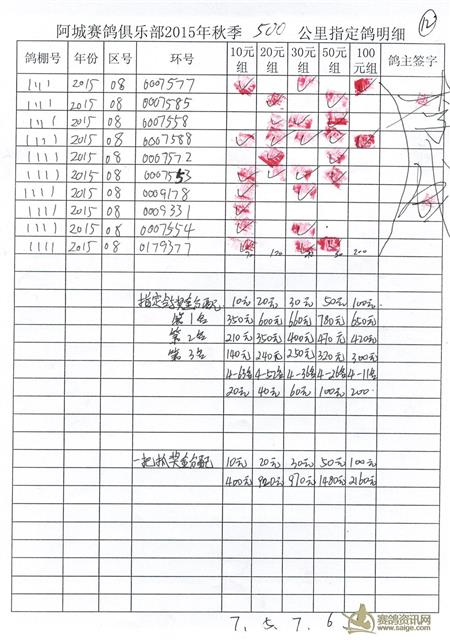 阿城赛鸽俱乐部2015年秋季 500 公里指定鸽明细
12
鸽棚号 年份 区号 环号 10元组 20元组 30元组 50元组 100元组 鸽主签字
1111 2015 08 0007577
1111 2015 08 0007585
1111 2015 08 0007558
1111 2015 08 0007588
1111 2015 08 0007572
1111 2015 08 0007553
1111 2015 08 0009178
1111 2015 08 0009331
1111 2015 08 0007554
1111 2015 08 0179377
200
指定鸽奖金分配 10元 20元 30元 50元 100元
第1名 350元 600元 660元 780元 650元
第2名 210元 350元 400元 470元 420元
第3名 140元 240元 250元 320元 300元
4-63名 4-52名 4-36名 4-26名 4-11名
20元 40元 60元 100元 200
一把抓奖金分配 10元 20元 30元 50元 100元
400元 920元 970元 1480元 2160元
7. 5. 7. 6
赛鸽资讯网
www.saige.com